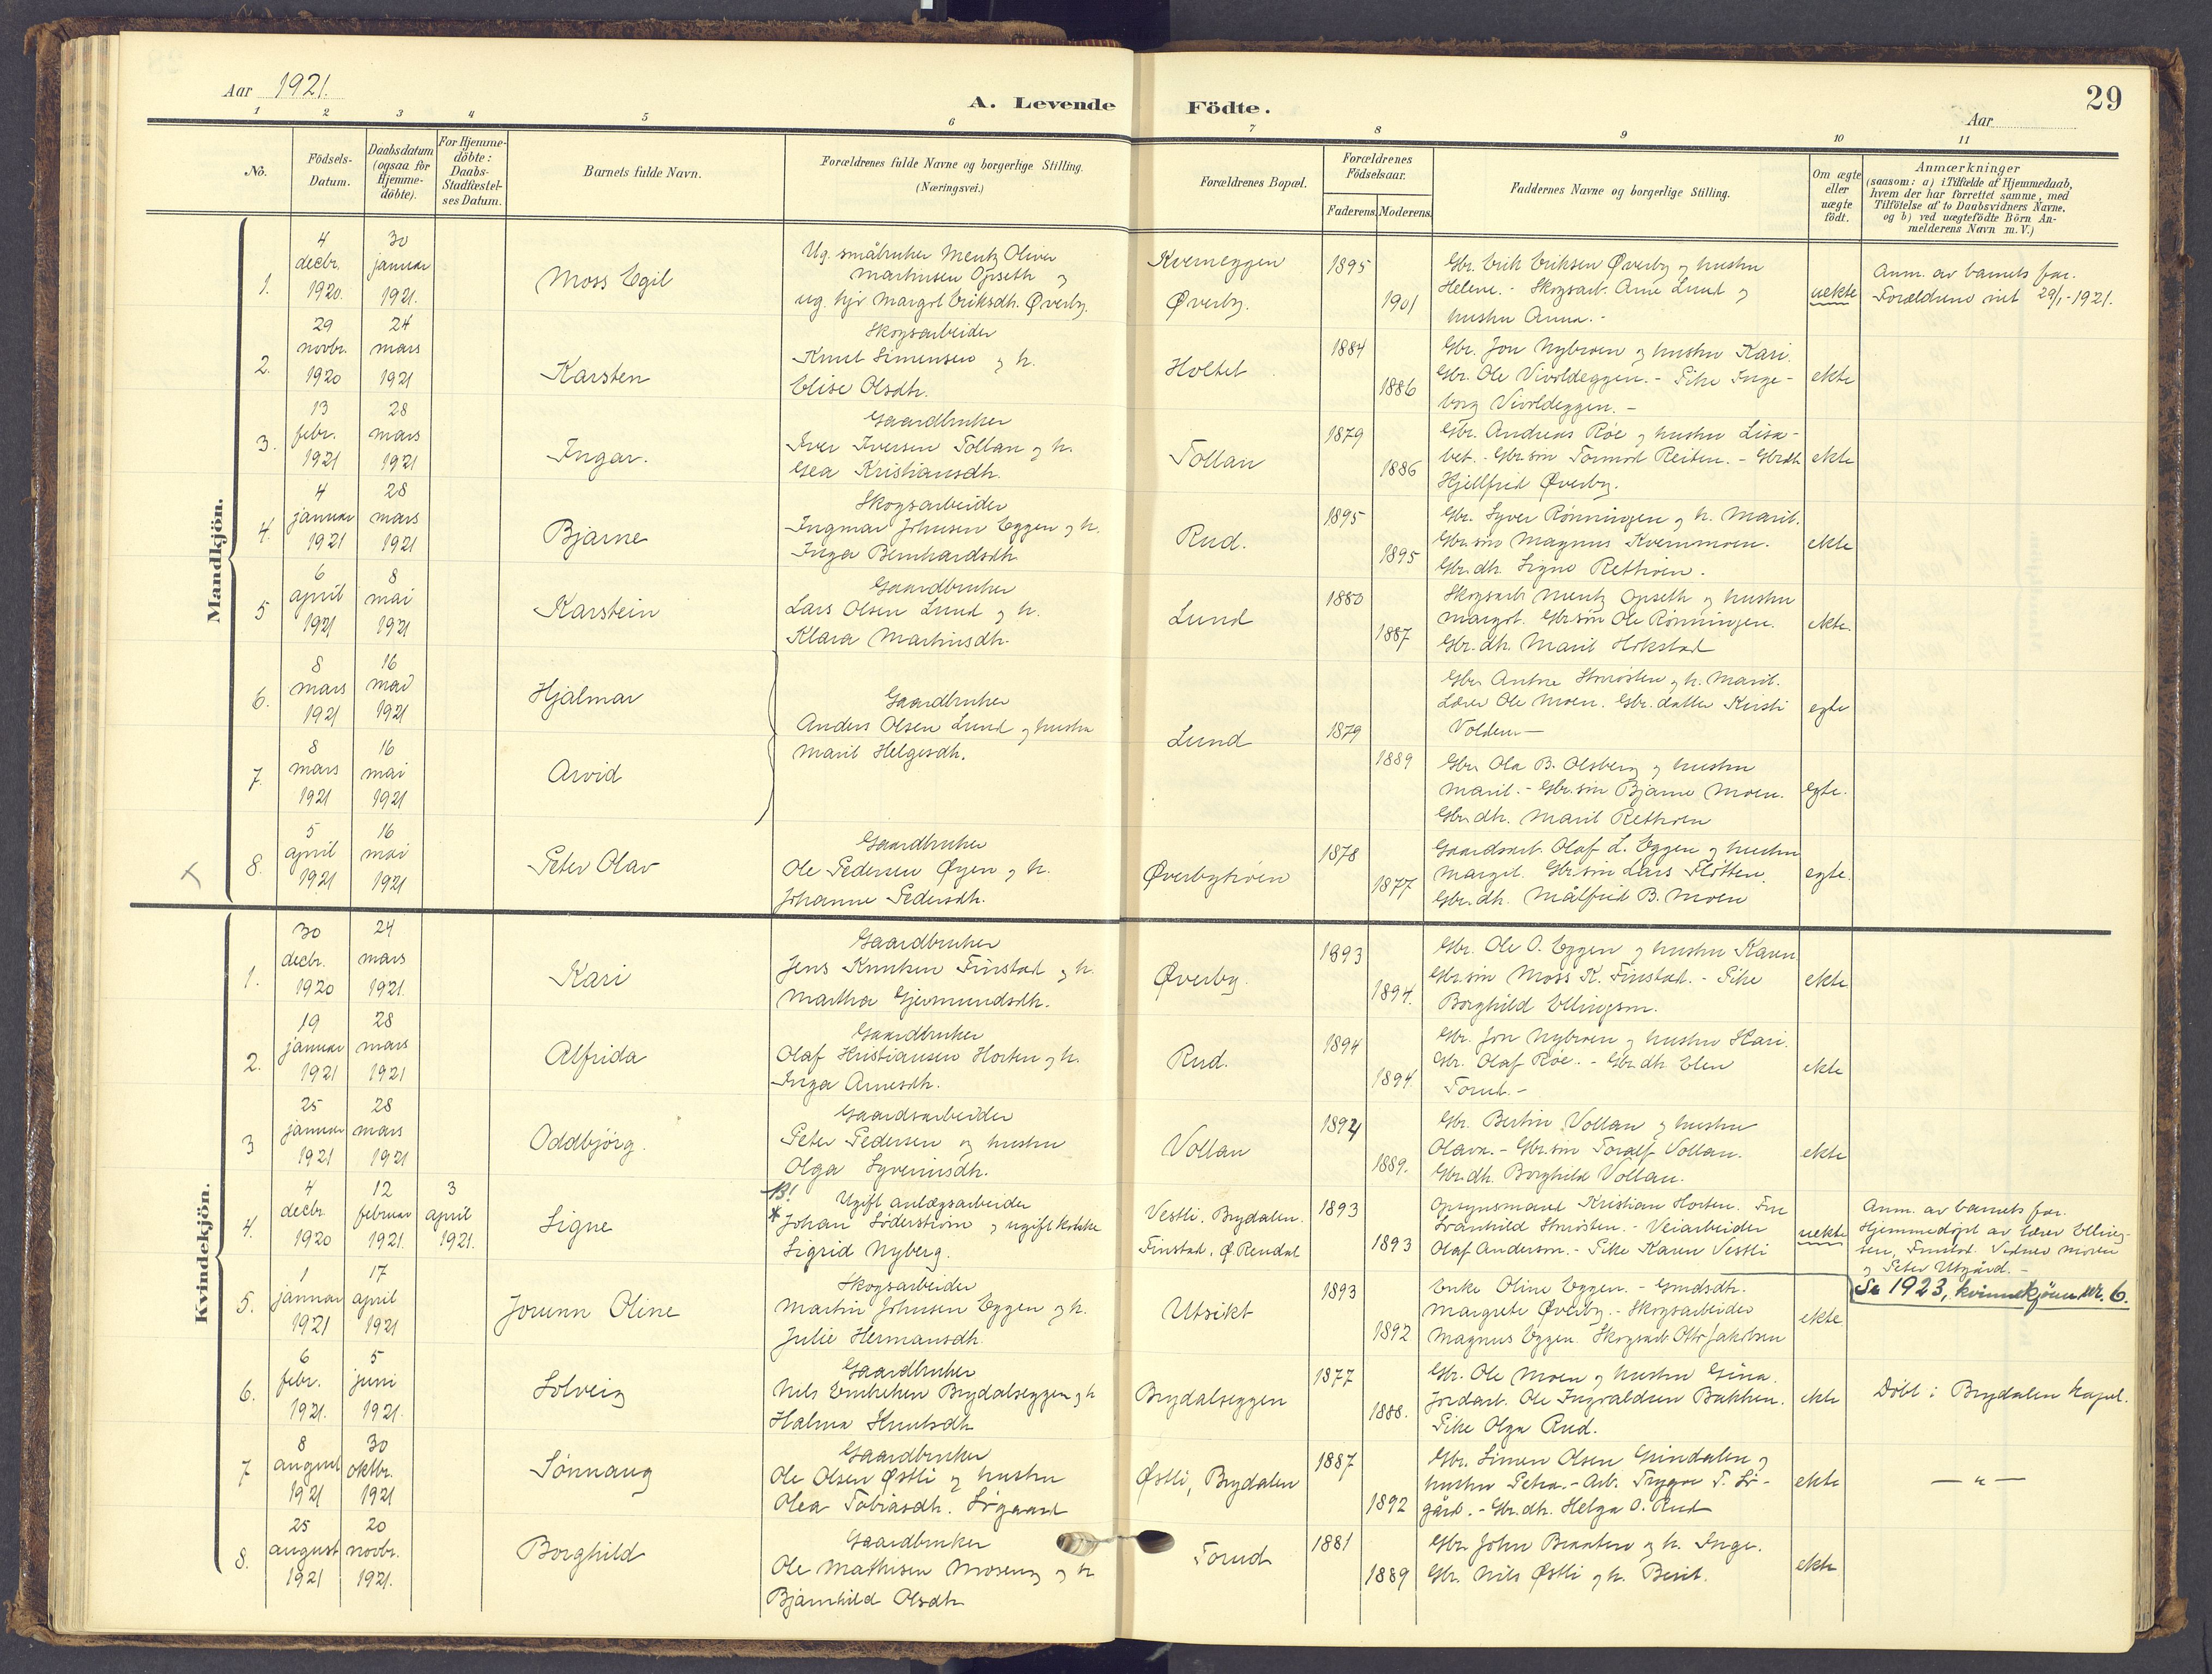 Aar 1921.
A. Levende Födte.
Aar
29
1 2 3 4 5 6 7 8 9 10 11
No.
Födsels-Datum.
Daabsdatum (ogsaa for Hjemme-döbte).
For Hjemme-döbte: Daabs-Stadfæstel-ses Datum.
Barnets fulde Navn.
Forældrenes fulde Navne og borgerlige Stilling. (Næringsvei.)
Forældrenes Bopæl.
Forældrenes Födselsaar.
Faderens. Moderens.
Faddernes Navne og borgerlige Stilling.
Om ægte eller uægte födt.
Anmærkninger (saasom: a) i Tilfælde af Hjemmedaab, hvem der har forrettet samme, med Tilföielse af to Daabsvidners Navne. og b) ved uægtefödte Börn Anmelderens Navn m. V.)
Mandkjön.
1.
4 decbr. 1920.
30 januar 1921.
Moss Egil
Ug. småbruker Mentz Oliver
Martinsen Opseth og
ug. hjv. Margot Eriksdh. Øverby.
Kverneggen
Øverby.
1895
1901
Gbr. Erik Eriksen Øverby og hustru
Helene. - Skogsarb. Arne Lund og
hustru Anna. -
uekte
Anm. av barnets far.
Forældrene viet 29/1-1921.
2.
29 novbr. 1920
24 mars 1921
Karsten
Skogsarbeider
Knut Simensen og h.
Elise Olsdtr.
Holtet
1884
1886
Gbr. Jon Nybroen og hustru Kari.
Gbr. Ole Vivoldeggen. - Pike Inge-
borg Vivoldeggen. -
ekte
3.
13 febr. 1921
28 mars 1921
Ingar.
Gaardbruker
Iver Iversen Tollan og h.
Gea Kristiansdh.
Tollan
1879
1886
Gbr. Andreas Røe og hustru Lisa-
bet. - Gbr.søn Tormod Reiten. - Gbrdh.
Hjellfrid Øverby.
ekte
4.
4 januar 1921
28 mars 1921
Bjarne
Skogsarbeider
Ingmar Johnsen Eggen og h.
Inga Bernhardsdh.
Rud.
1895
1895
Gbr. Syver Rønningen og h. Marit.
Gbr.søn Magnus Kvernmoen.
Gbr.dh. Signe Rethoen.
ekte
5
6 april 1921
8 mai 1921
Karstein
Gaardbruker
Lars Olsen Lund og h.
Klara Martinsdh.
Lund
1880
1887
Skogsarb. Mentz Opseth og hustru
Margot. Gbr.søn Ole Rønningen.
Gbr.dh. Marit Hokstad
ekte.
6.
8 mars 1921
16 mai 1921
Hjalmar
Gaardbruker
Anders Olsen Lund og hustru
Marit Helgesdh.
Lund
1879
1889
Gbr. Antne h. Marit.
Lærer Ole Moen. Gbr. datter Kirsti
Volden -
egte
7.
8 mars 1921
16 mai 1921
Arvid
Gbr. Ola B. Olsberg og hustru
Marit. - Gbr.søn Bjarne Moen.
Gbr.dh. Marit Rethoen
egte.
8.
5 april 1921
16 mai 1921
Peter Olav
Gaardbruker
Ole Pedersen Øyen og h.
Johanne Pedersdh.
Øverbytrøen
1878
1877
Gaardsarb. Olaf L. Eggen og hustru
Margit. Gbr.søn Lars Flötten.
Gbr.dh. Målfrid B. Moen
egte.
Kvindekjön.
1.
30 decbr. 1920
24 mars 1921.
Kari
Gaardbruker
Jens Knutsen Finstad og h.
Martha Gjermundsdh.
Øverby.
1893
1894.
Gbr. Ole O. Eggen og hustru Karen
Gbr.søn Moss K. Finstad. - Pike
Borghild Ellingsen.
ekte
2.
19 januar 1921
28 mars 1921
Alfrida
Gaardbruker
Olaf Kristiansen Horten og h.
Inga Arnesdh.
Rud.
1894
1894.
Gbr. Jon Nybroen og hustru Kari.
Gbr. Olaf Røe. - Gbr.dh. Elen
Torud. -
ekte
3
25 januar 1921
28 mars 1921
Oddbjörg.
Gaardsarbeider
Peter Pedersen og hustru
Olga Syverinsdh.
Vollan
1894
1889.
Gbr. Bertin Vollan og hustru
Olava. - Gbr.søn Toralf Vollan.
Gbr.dh. Borghild Vollan.
ekte
4.
4 decbr. 1920
12 februar 1921.
3 april 1921.
Signe
B!
Ugift anlægsarbeider
* Johan Söderström og ugift kokke
Sigrid Nyberg.
Vestli, Brydalen.
Finstad, Ø. Rendal
1893
1893
Opsynsmand Kristian Horten. Fru
Svanhild - Veiarbeider
Olaf Anderson. - Pike Karen Vestli
uekte
Anm. av barnets far.
Hjemmedøpt av lærer Elling-
sen, Finstad. Vidner moren
og Peter Utgård. -
Se 1923, kvinnekjønn nr. 6.
5.
1 januar 1921
17 april 1921
Jorunn Oline
Skogsarbeider
Martin Johnsen Eggen og h.
Julie Hermansdh.
Utsikt
1893
1892
Enke Oline Eggen. - Grndsdh.
Margrete Øverby. - Skogsarbeider
Magnus Eggen. Skogsarb. Otto Jakobsen
ekte
6.
6 febr. 1921.
5 juni 1921.
Solveig
Gaardbruker
Nils Embretsen Brydalseggen og h
Halma Knutsdh.
Brydalseggen
1877
1888.
Gbr. Ole Moen og hustru Gina.
Jordarb. Ole Ingvaldsen Bakken.
Pike Olga Rud.
ekte
Döbt i Brydalen kapel.
7
8 august 1921
30 oktbr. 1921
Sönnaug
Gaardbruker
Ole Olsen Østli og hustru
Olea Tobiasdh. Sögaard
Østli, Brydalen
1887
1892
Gbr. Simen Olsen Grindalen og
hustru Petra. - Arb. Trygve T. Sö-
gård. - Gbr.dh. Helga O. Rud
ekte
— " —
8.
25 august 1921
20 novbr. 1921.
Borghild
Gaardbruker
Ole Mathisen Moseng og h
Bjarnhild Olsdh.
Torud
1881
1889
Gbr. John Braaten og h. Inga.
Gbr. Nils Østli og h. Berit.
ekte